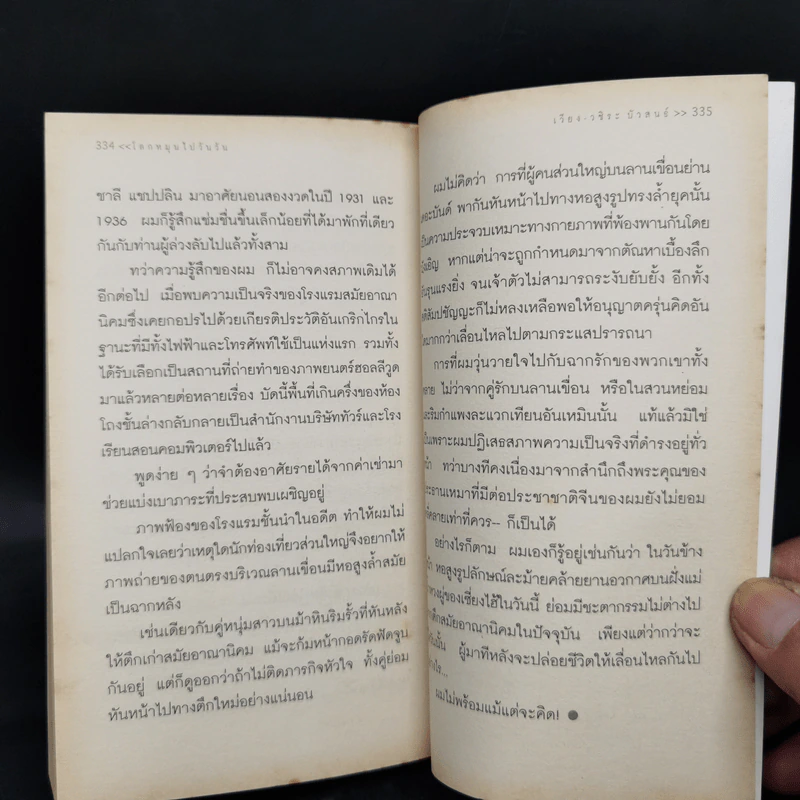 334 <<โลกหมุนไปวันวัน
ชาลี แชปปลิน มาอาศัยนอนสองงวดในปี 1931 และ
1936 ผมก็รู้สึกแช่มชื่นขึ้นเล็กน้อยที่ได้มาพักที่เดียว
กันกับท่านผู้ล่วงลับไปแล้วทั้งสาม
ทว่าความรู้สึกของผม ก็ไม่อาจคงสภาพเดิมได้
อีกต่อไป เมื่อพบความเป็นจริงของโรงแรมสมัยอาณา
นิคมซึ่งเคยกอปรไปด้วยเกียรติประวัติอันเกริกไกรใน
ฐานะที่มีทั้งไฟฟ้าและโทรศัพท์ใช้เป็นแห่งแรก รวมทั้ง
ได้รับเลือกเป็นสถานที่ถ่ายทำของภาพยนตร์ฮอลลีวูด
มาแล้วหลายต่อหลายเรื่อง บัดนี้พื้นที่เกินครึ่งของห้อง
โถงชั้นล่างกลับกลายเป็นสำนักงานบริษัททัวร์และโรง
เรียนสอนคอมพิวเตอร์ไปแล้ว
พูดง่าย ๆ ว่าจำต้องอาศัยรายได้จากค่าเช่ามา
ช่วยแบ่งเบาภาระที่ประสบพบเผชิญอยู่
ภาพฟ้องของโรงแรมชั้นนำในอดีต ทำให้ผมไม่
แปลกใจเลยว่าเหตุใดนักท่องเที่ยวส่วนใหญ่จึงอยากให้
ภาพถ่ายของตนตรงบริเวณลานเขื่อนมีหอสูงล้ำสมัย
เป็นฉากหลัง
เช่นเดียวกับคู่หนุ่มสาวบนม้าหินริมรั้วที่หันหลัง
ให้ตึกเก่าสมัยอาณานิคม แม้จะก้มหน้ากอดรัดฟัดจูบ
กันอยู่ แต่ก็ดูออกว่าถ้าไม่ติดภารกิจหัวใจ ทั้งคู่ย่อม
หันหน้าไปทางตึกใหม่อย่างแน่นอน
เรียง-วชิระ บัวสนธ์ >> 335
ผมไม่คิดว่า การที่ผู้คนส่วนใหญ่บนลานเขื่อนย่าน
เดอะบันด์ พากันหันหน้าไปทางหอสูงรูปทรงล้ำยุคนั้น
เป็นความประจวบเหมาะทางกายภาพที่พ้องพานกันโดย
บังเอิญ หากแต่น่าจะถูกกำหนดมาจากตัณหาเบื้องลึก
รุนแรงยิ่ง จนเจ้าตัวไม่สามารถระงับยับยั้ง อีกทั้ง
สติสัมปชัญญะก็ไม่หลงเหลือพอให้อนุญาตครุ่นคิดอัน
ใดมากกว่าเลื่อนไหลไปตามกระแสปรารถนา
การที่ผมวุ่นวายใจไปกับฉากรักของพวกเขาทั้ง
หลาย ไม่ว่าจากคู่รักบนลานเขื่อน หรือในสวนหย่อม
และริมกำแพงละแวกเทียนอันเหมินนั้น แท้แล้วมิใช่
เป็นเพราะผมปฏิเสธสภาพความเป็นจริงที่ดำรงอยู่ทั่ว
หน้า ทว่าบางทีคงเนื่องมาจากสำนึกถึงพระคุณของ
ประธานเหมาที่มีต่อประชาชาติจีนของผมยังไม่ยอม
คลายเท่าที่ควร-- ก็เป็นได้
อย่างไรก็ตาม ผมเองก็รู้อยู่เช่นกันว่า ในวันข้าง
หน้า หอสูงรูปลักษณ์ละม้ายคล้ายยานอวกาศบนฝั่งแม่
น้ำหวงผู่ของเซี่ยงไฮ้ในวันนี้ ย่อมมีชะตากรรมไม่ต่างไป
จากตึกสมัยอาณานิคมในปัจจุบัน เพียงแต่ว่ากว่าจะ
ถึงวันนั้น ผู้มาทีหลังจะปล่อยชีวิตให้เลื่อนไหลกันไป
อย่างไร...
ผมไม่พร้อมแม้แต่จะคิด! ●